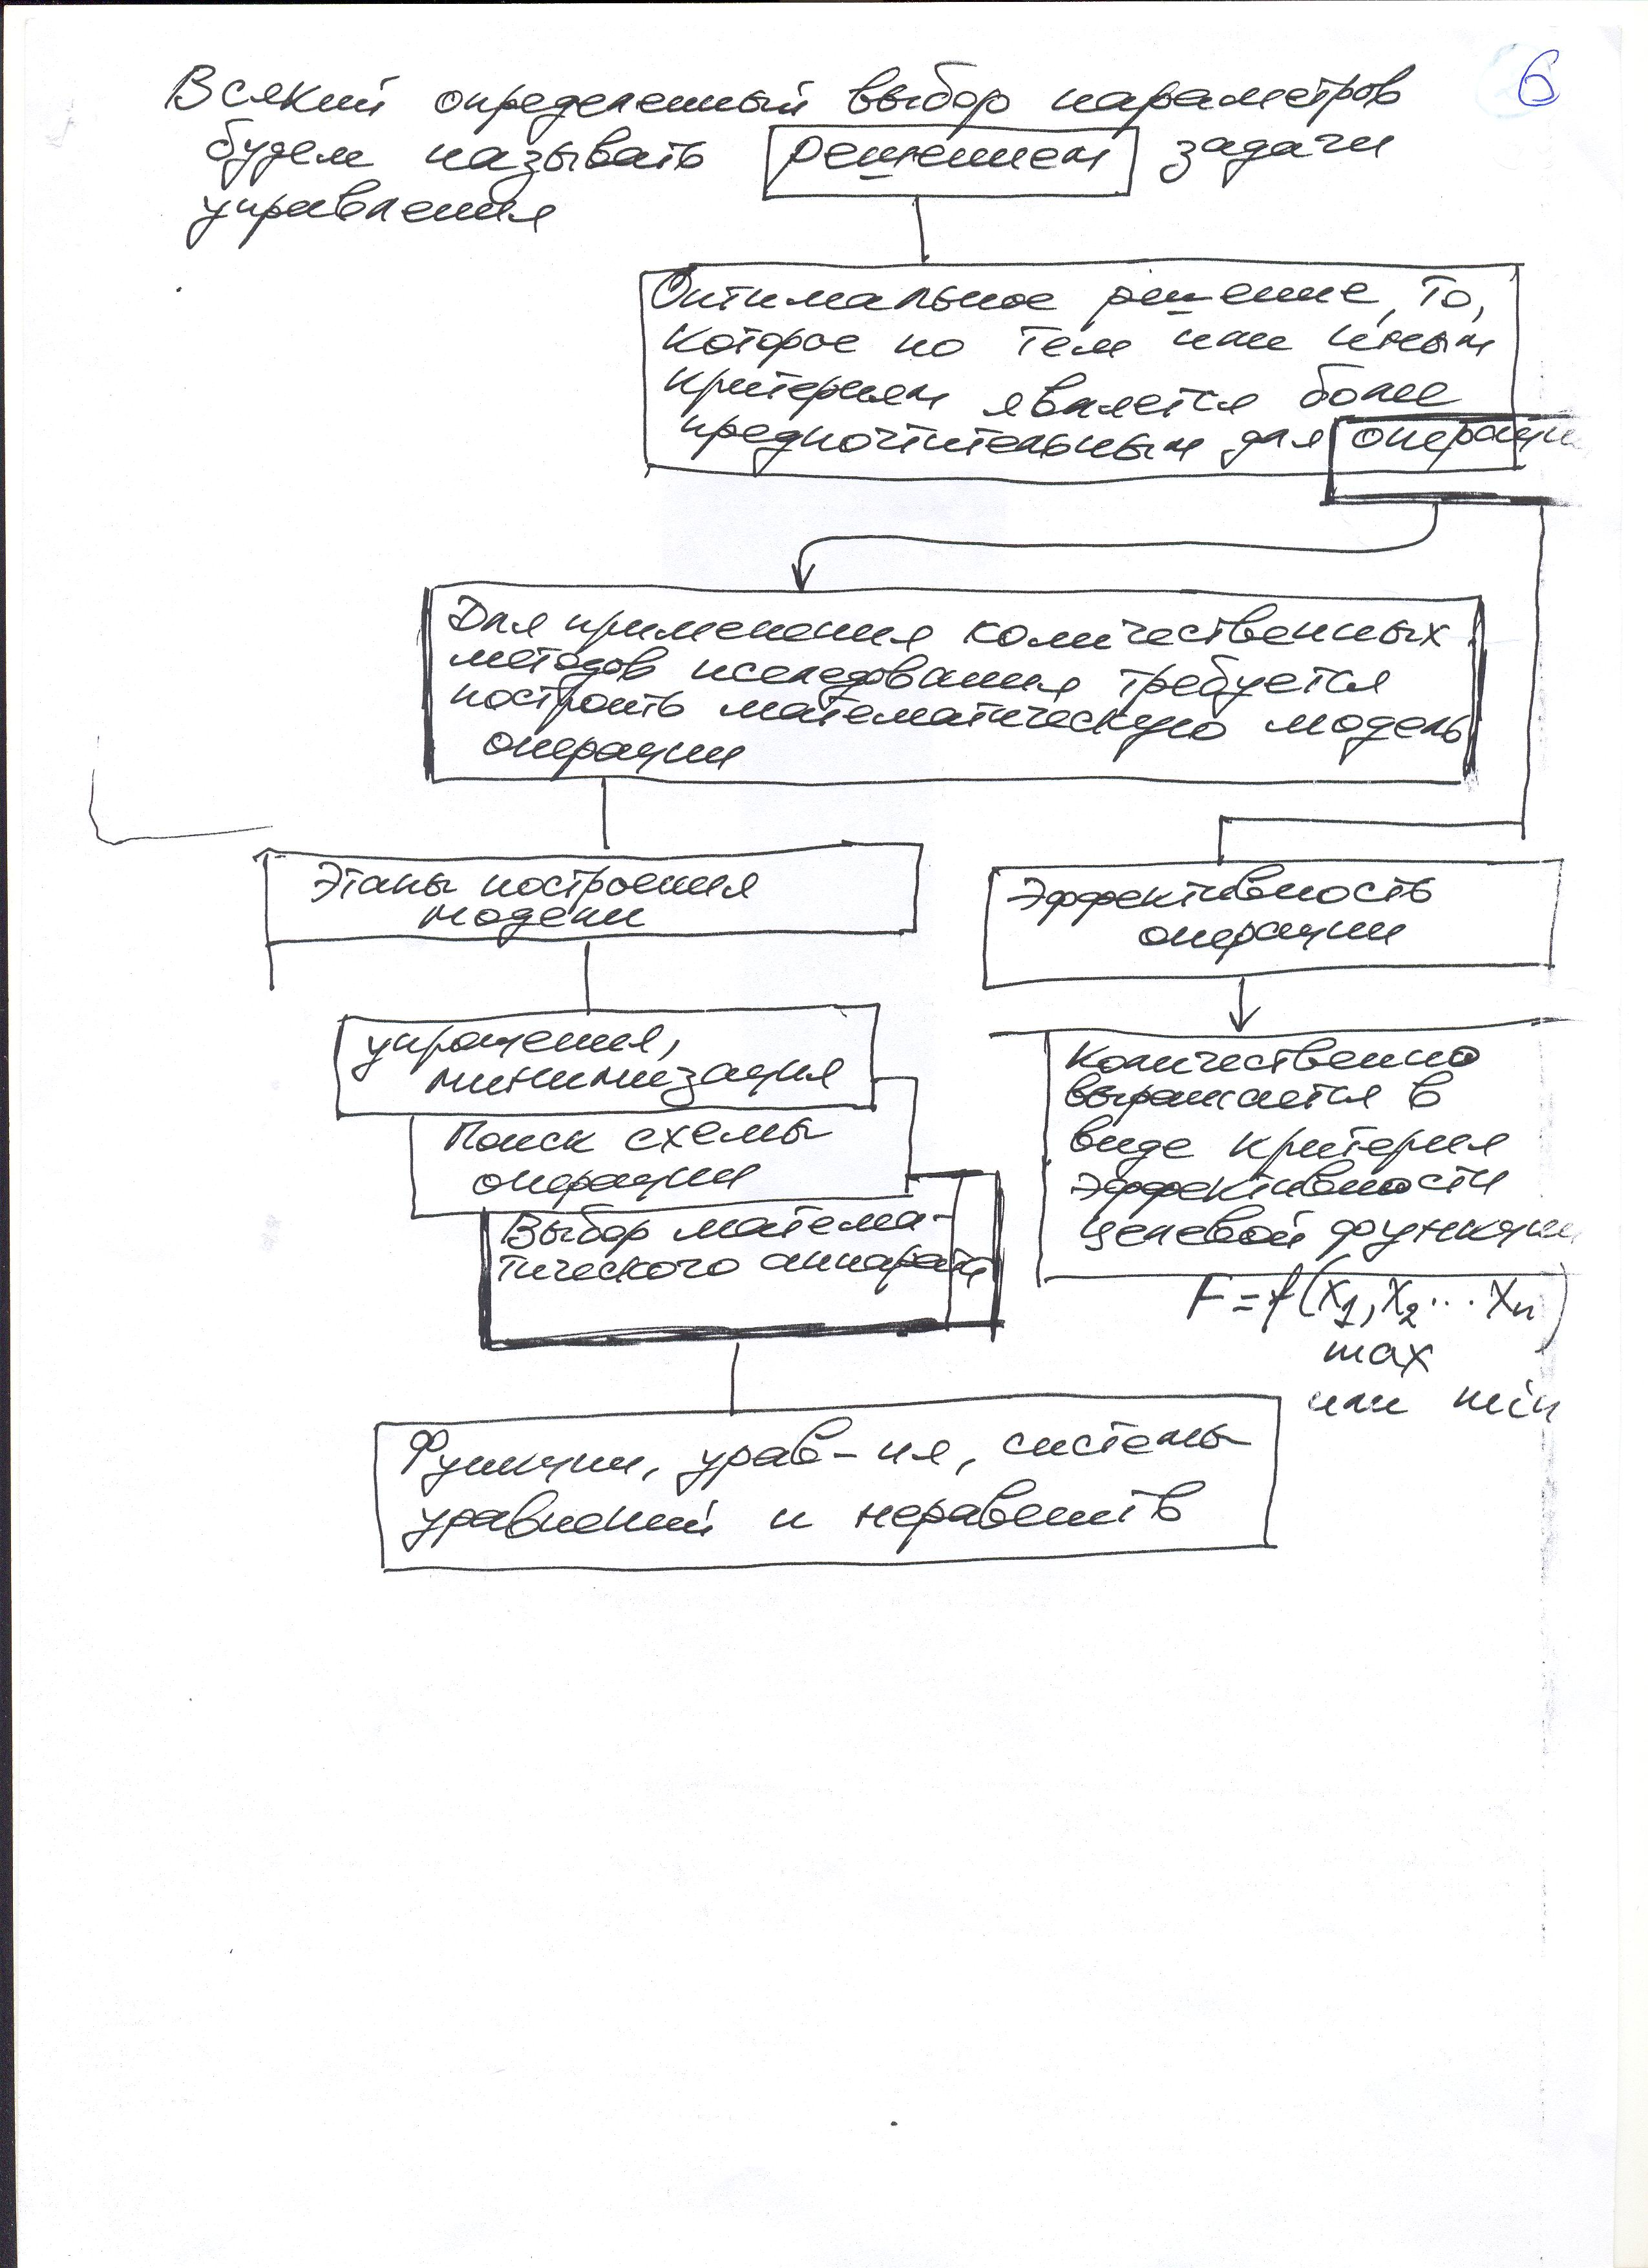 6
Всякий определенный выбор параметров
будем называть решением задачи
управления
Оптимальное решение, то,
которое по тем или иным
критериям является более
предпочтительным для операции
Для применения количественных
методов исследования требуется
построить математическую модель
операции
Этапы построения
модели
упрощения,
минимизация
Поиск схемы
операции
Выбор матема-
тического аппарата
Функции, урав-ия, системы
уравнений и неравенств
Эффективность
операции
Количественно
выражается в
виде критерия
эффективности
целевой функции
F = f(x1, x2 ... xn)
max
или min